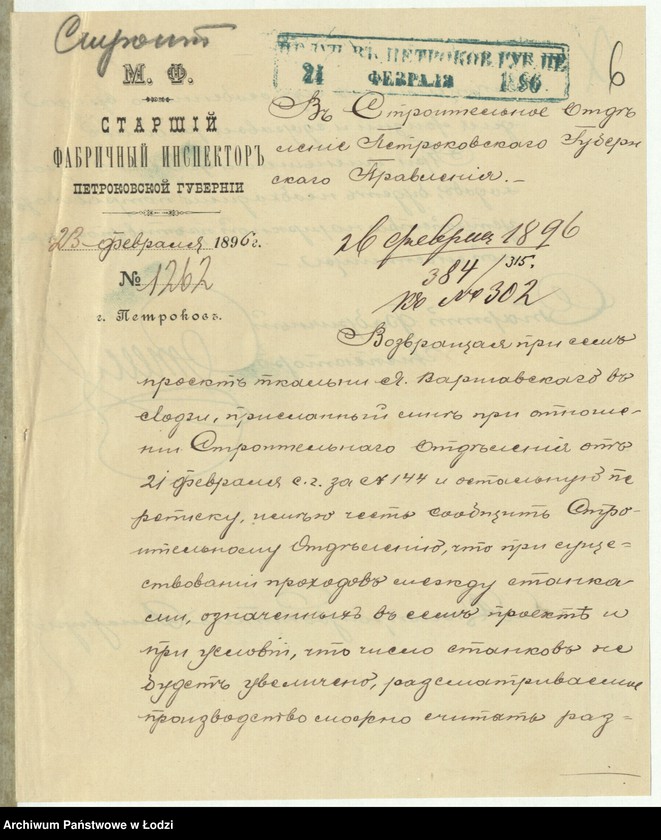 6
ПЕТРОКОВ. ГУБ.
24 ФЕВРАЛЯ 1896
М. Ф.
СТАРШІЙ
ФАБРИЧНЫЙ ИНСПЕКТОРЪ
ПЕТРОКОВСКОЙ ГУБЕРНІИ
23 февраля 1896 г.
№ 1262
г. Петроковъ.
Въ Строительное Отдѣ
леніе Петроковскаго Губерн
скаго Правленія.
26 февраля 1896
384/315.
къ № 302
Возвращая при семъ
проектъ ткальни А. Варшавскаго въ
Лодзи, присланный мнѣ при отноше-
ніи Строительнаго Отдѣленія отъ
21 февраля с. г. за № 144 и остальную пе
реписку, имѣю честь сообщить Стро-
ительному Отдѣленію, что при суще-
ствованіи проходовъ между станка-
ми, означенныхъ въ семъ проектѣ и
при условіи, что число станковъ не
будетъ увеличено, разсматриваемое
производство можно считать раз-
Archiwum Państwowe w Łodzi